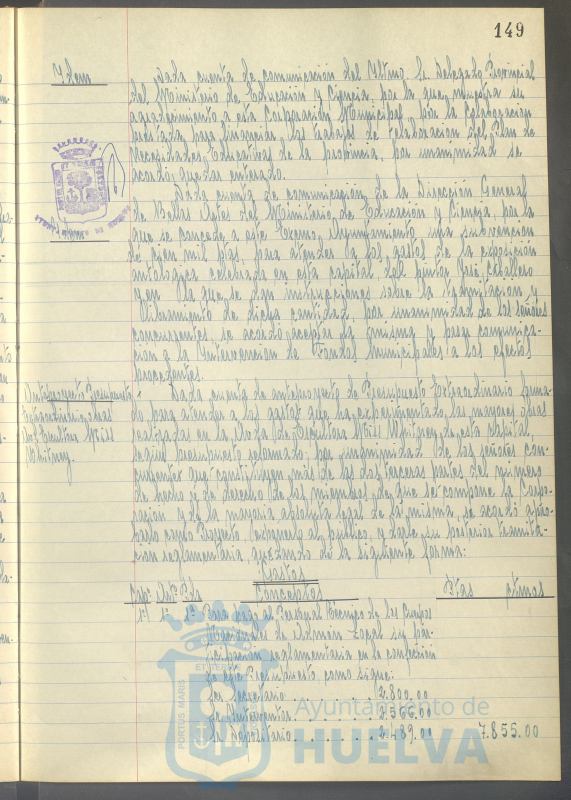 149
Idem
Dada cuenta de comunicación del Iltmo. Sr. Delegado Provincial
del Ministerio de Educación y Ciencia, por la que muestra su
agradecimiento a esta Corporación Municipal por la colaboración
prestada para financiar los trabajos de elaboración del Plan de
Necesidades Educativas de la provincia, por unanimidad se
acordó quedar enterado.
Idem
Dada cuenta de comunicación de la Dirección General
de Bellas Artes del Ministerio de Educación y Ciencia, por la
que se concede a este Excmo. Ayuntamiento una subvención
de cien mil ptas, para atender a los gastos de la exposición
antológica celebrada en esta capital del pintor José Caballero
y en la que se dan instrucciones sobre la tramitación y
libramiento de dicha cantidad, por unanimidad de los señores
concurrentes, se acordó aceptar la misma y pasar comunica-
ción a la Intervención de Fondos Municipales a los efectos
procedentes.
Anteproyecto Presupuesto
Extraordinario obras
Avd. Escultora Miss
Whitney.
Dada cuenta de anteproyecto de Presupuesto Extraordinario forma-
do para atender a los gastos que ha experimentado las mayores obras
realizadas en la Avda de Escultora Miss Whitney de esta capital,
según presupuesto reformado, por unanimidad de los señores con-
currentes que constituyen más de las dos terceras partes del número
de hecho y de derecho de los miembros de que se compone la Corpo-
ración y de la mayoría absoluta legal de la misma, se acordó apro-
barlo como Proyecto, exponerlo al público, y darle su posterior tramita-
ción reglamentaria, quedando de la siguiente forma:
Gastos
Cap. Art. Pda Conceptos Ptas ctmos
1º 1º 1ª Para pago al Personal Técnico de los Cuerpos
Nacionales de Admon Local su par-
ticipación reglamentaria en la confección
de este Presupuesto como sigue:
Sr. Secretario 2.800.00
Sr. Interventor 2.566.00
Sr. Depositario 2.489.00 7.855.00
PORTUS MARIS
ET TERRAE
Ayuntamiento de
HUELVA